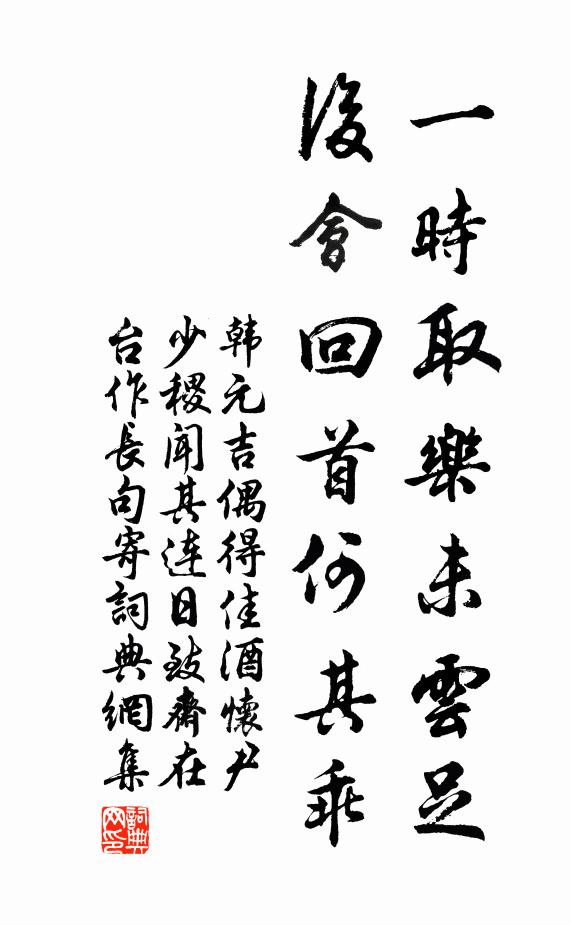 一時取樂未雲足
後會回首何其乖
韩元吉偶得佳酒懷尹
少稷闻其连日致齋在
台作長句寄詞典網集
詞典网印